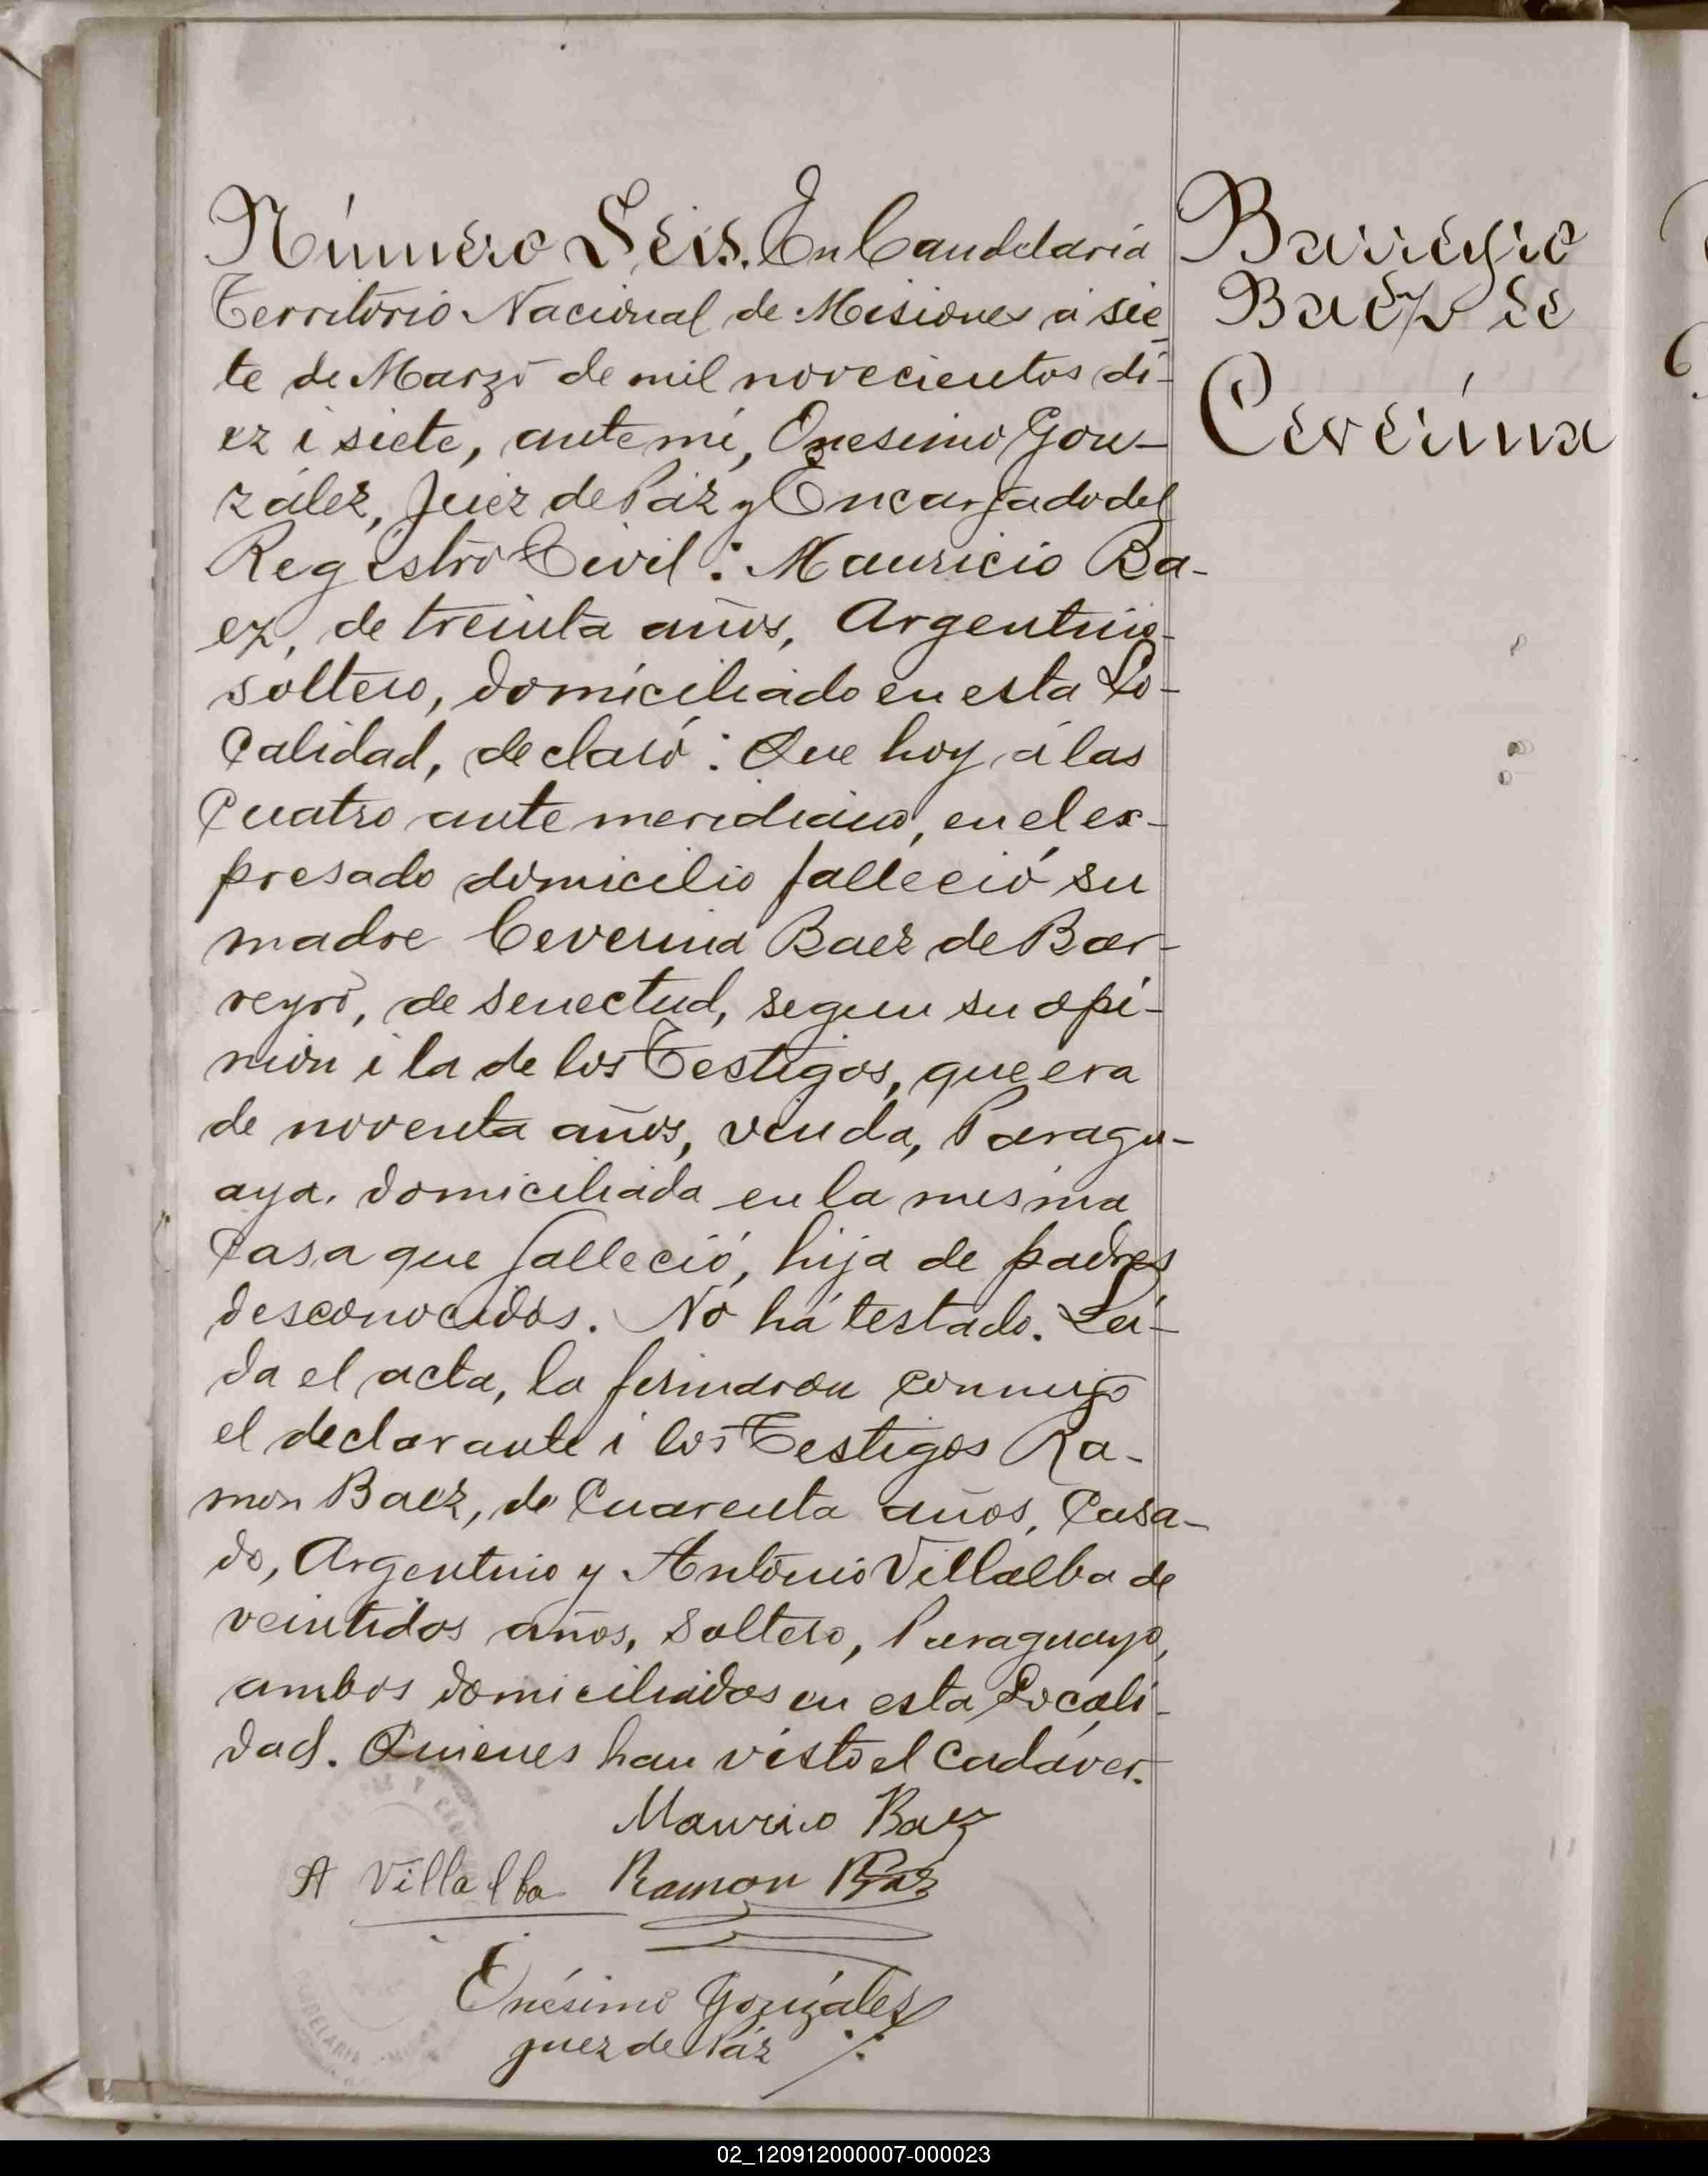 Número Seis. En Candelaria
Territorio Nacional de Misiones á sie
te de Marzo de mil novecientos di-
ez i siete, ante mí, Onesimo Gon-
zález, Juez de Páz y Encargado del
Registro Civil: Mauricio Ba-
ez, de treinta años, Argentino-
soltero, domiciliado en esta Lo-
calidad, declaró: Que hoy, á las
Cuatro ante meridiano, en el ex-
presado domicilio falleció su
madre Ceverina Baez de Bar-
reyro, de senectud, segun su opi-
nion i la de los Testigos, que era
de noventa años, viuda, Paragu-
aya, domiciliada en la misma
Casa que falleció, hija de padres
desconocidos. No há testado. Leí-
da el acta, la firmaron conmigo
el declarante i los Testigos Ra-
mon Baez, de Cuarenta años, Casa-
do, Argentino y Antonio Villalba de
veintidos años, soltero, Paraguayo,
ambos domiciliados en esta Locali-
dad. Quienes han visto el Cadáver.
Mauricio Baez
A Villalba Ramon Baez
Onésimo González
Juez de Páz
Barreyro
Baez de
Ceverina
02_120912000007-000023